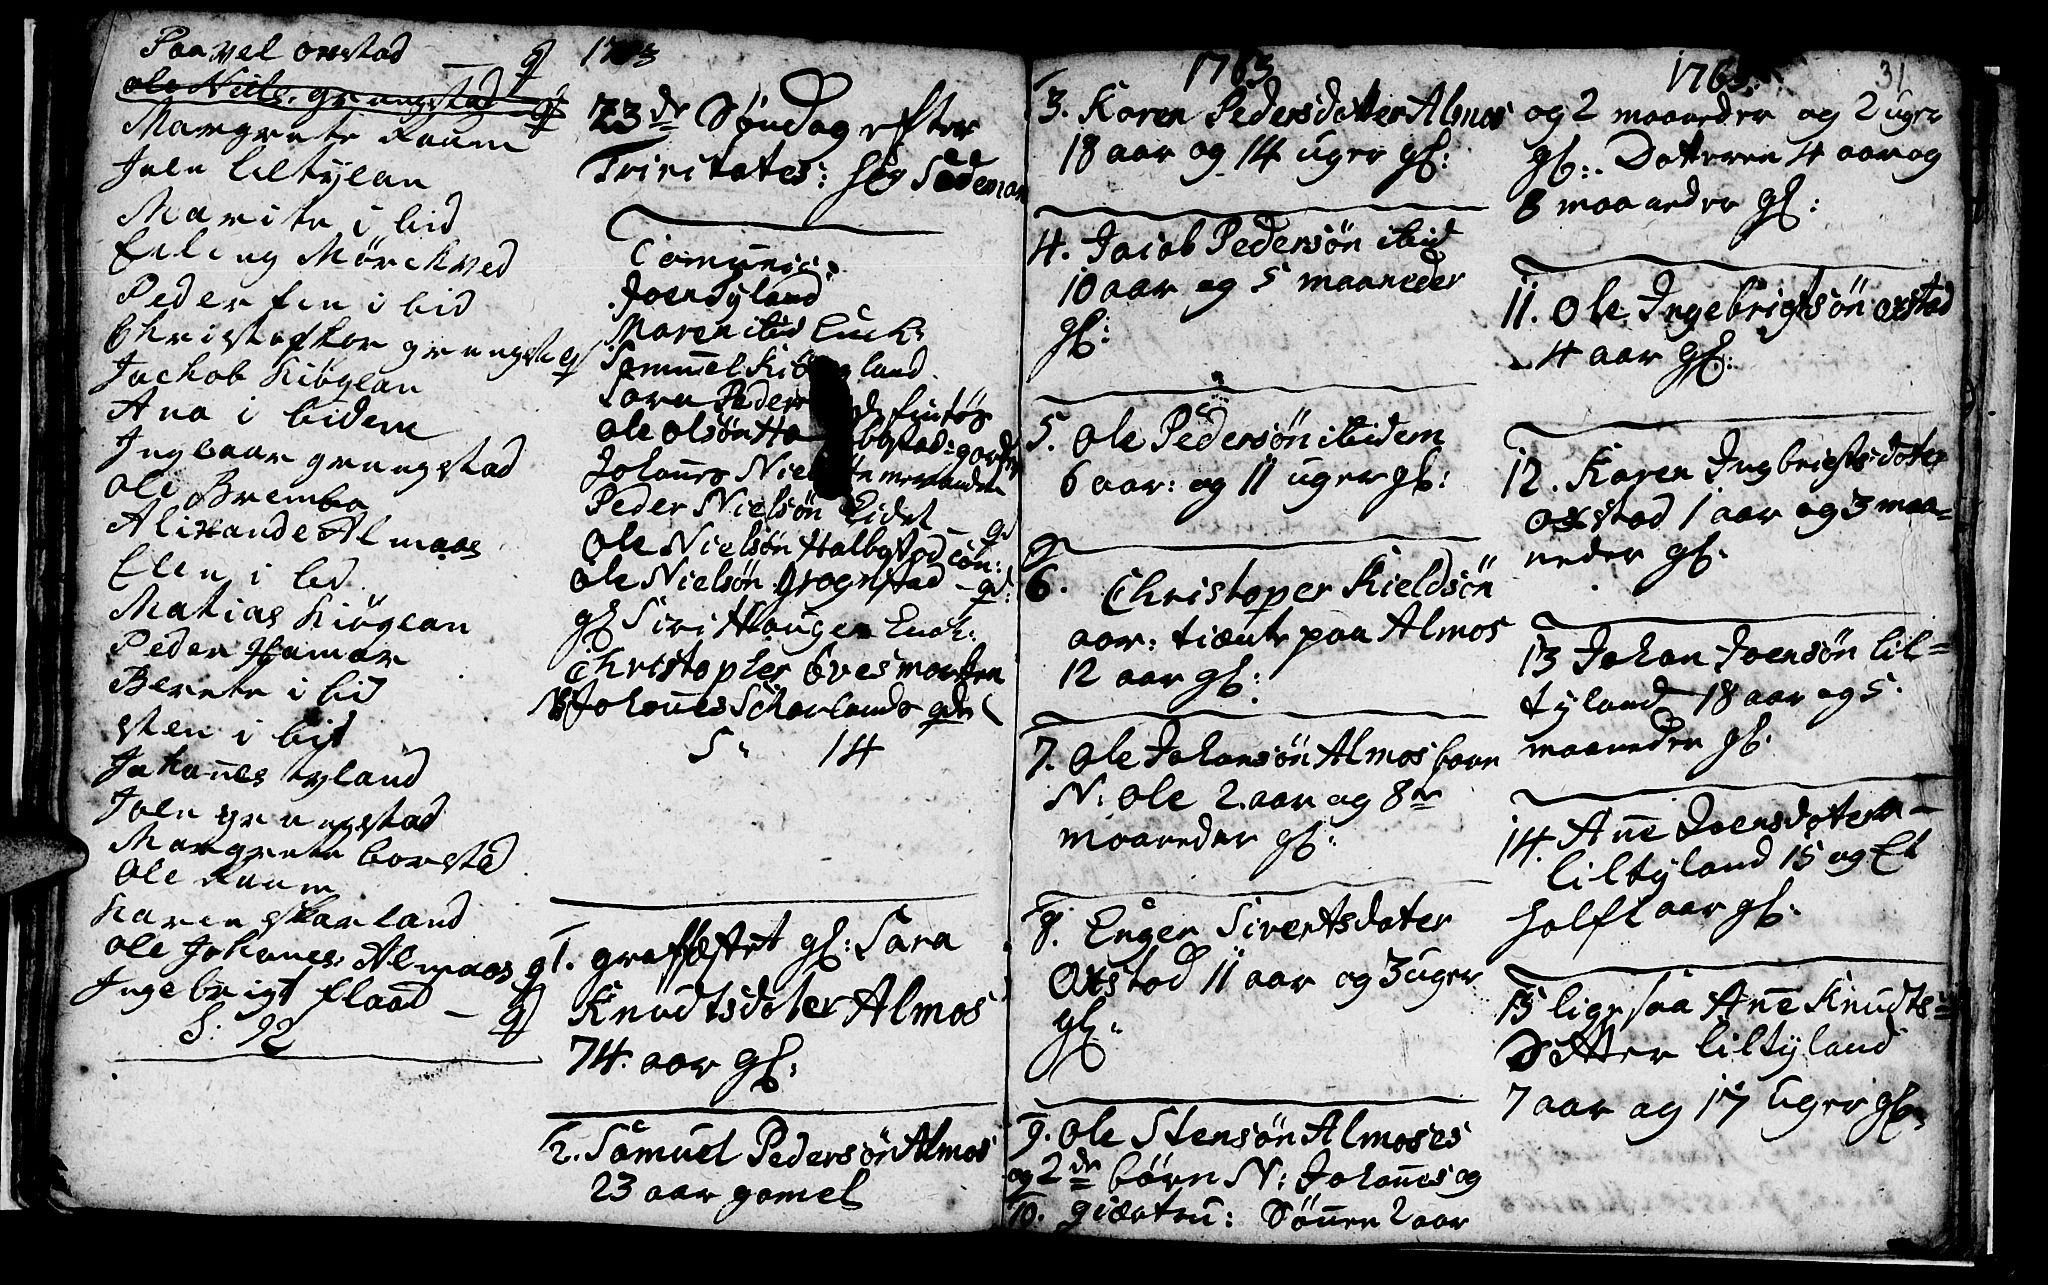 Paavel oxstad
ole Niels. grangstad
Margrete Raum
Joen liltylan
Marite i bid
Erling Mörckved
Peder fin i bid
Christoffor grangst
Jachob Kiöglan
Ana i bidem
Ingbaar grangstad
ole Brembo
Alixande Almaas
Elen i bid
Matias Kiöglan
Peder Hamar
Berete i bid
sten i bid
Johañes tyland
Joen grangstad
Margrete borstad
ole Raum
Karen skarland
ole Johanes: Almaas
Ingebrigt flaad
S: 92
1763
23de Söndag efter
Trinitates:
Comunic:
Joen tyland
Maren ibid Enck:
Sammel Kiögland
Sara Peders
ole olsön
Johannes Niels
Peder Nielsön Eidet
Ole Nielsön Halbostad
ole Nielsön grognstad
gl Siri Haugen Enck:
Christopher Övesmarken
Johañes Scharlands
S: 14
1. graffæstet gl: Sara
Knudtsdater Almos
74. aar gl:
2. Samuel Pedersön Almos
23 aar gamel
1763
3. Karen Pedersdatter Almos
18 aar og 14 uger gl:
4. Jacob Pedersön ibid
10 aar og 5 maaneder
gl:
5. ole Pedersön ibidem
6 aar: og 11 uger gl:
6. Christoper Kieldsön
aar: tiænte paa Almos
12 aar gl:
7. ole Johansön Almos barn
N: ole 2 aar og 8te
maaneder gl:
8. Enger Sivertsdater
Oxstad 11 aar og 3 uger
gl:
9. ole Stensön Almoses
og 2de börn N: Johañes og
10. giærtru: Sönnen 2 aar
1763.
31
og 2 maaneder og 2 uger
gl:. Dotteren 4 aar og
8 maaneder gl:
11. ole Ingebrigtsön oxstad
4 aar gl:
12. Karen Ingbrigtsdoter
oxstad 1 aar og 3 maa=
neder gl.
13 Johan Joensön lil=
tyland 18 aar og 5.
maaneder gl.
14. Añe Joensdoter
liltyland 15 og Et
halft aar gl:
15 ligesaa Añe Knudts=
Datter liltyland
7 aar og 17 uger gl: